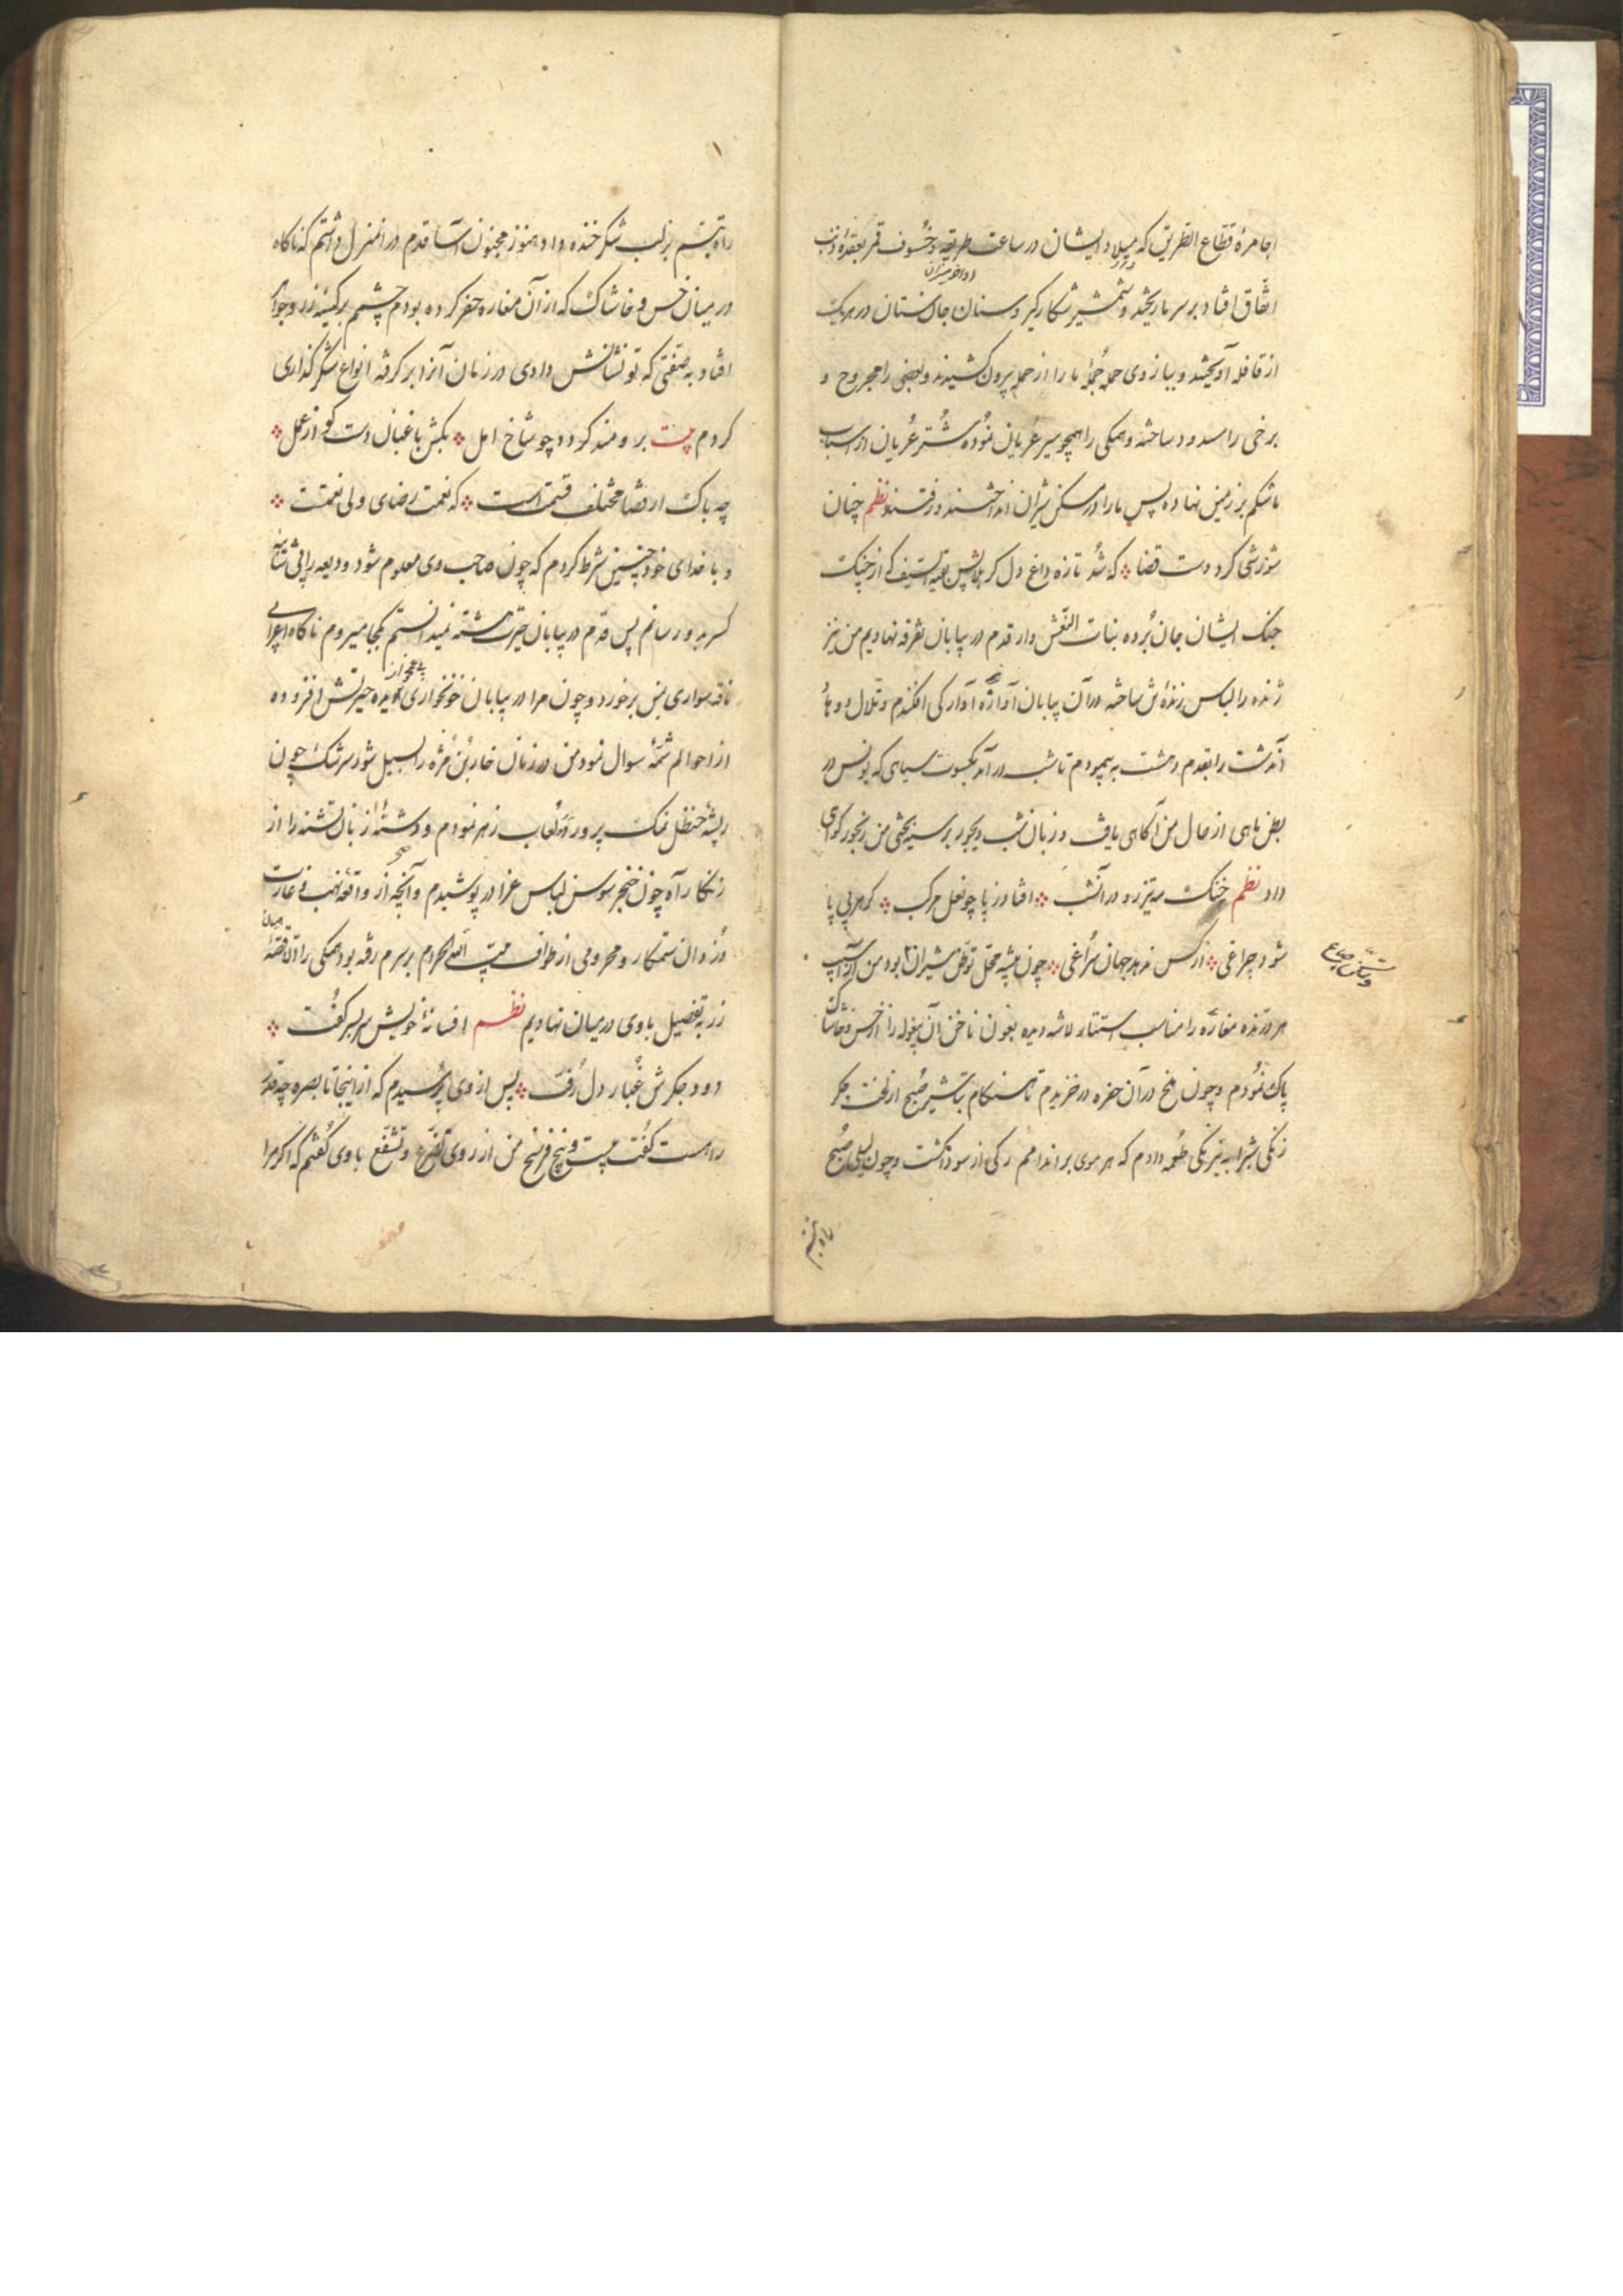 اجامرهٔ قطاع الطریق که میلاد ایشان در ساعت طریقه و خسوف قمر بعقدهٔ ذنب
اتفاق افتاد بر سر ما ریختند و شمشیر شکار گیر و سنان جان ستان در هر یک
از قافله آویختند و ببازوی حمله جملهٔ ما را از حمله بیرون کشیدند و بعضی را مجروح و
برخی را مسدود ساخته و همگی را همچو سیر عریان نموده شتر عریان از اسباب
ما شکم بر زمین نهاده پس ما را در مسکن شیران انداختند و رفتند نظم چنان
شورشی کرد دست قضا که شد تازه داغ دل کربلا پس بقیة السیف که از چنک
جنک ایشان جان برده بنات النعش وار قدم در بیابان تفرقه نهادیم من نیز
ژنده را لباس زنده‌ش ساخته در آن بیابان آوازهٔ آوارگی افکندم و تلال و وهاد
آندشت را بقدم دهشت به پیمودم تا شب در آمد بکسوت سیاهی که یونس در
بطن ماهی از حال من آگاهی یافت و زبان شب دیجور بر سیه بختی من رنجور گواهی
داد نظم خنک مه تیزرو در آنشب افتاد ز پا چو نعل مرکب کرمهر پی پا
شود چراغی از کس ندهد جهان سراغی چون بیشه محل توطن شیران بود من از آسیب
هر درنده مغاره را مناسب استتار لاشه دیده بعون ناخن آن بیغوله را از خس و خاشاک
پاک نمودم و چون ملخ در آن حفره در خزیدم تا هنگام تباشیر صبح از لخت جگر
زنگی شب را به نیرنگی طعمه دادم که هر موی بر اندامم رگی از سودا گشت و چون لیلی صبح
راه تبسم
راه تبسم بر لب شکر خنده داد هنوز مجنون آسا قدم در آنمنزل داشتم که ناگاه
در میان خس و خاشاک که از آن مغاره حفر کرده بودم چشمم بر کیسهٔ زر و جواهر
افتاد به صفتی که تو نشانش دادی در زمان آنرا بر گرفته انواع شکر گذاری
کردم بیت برومند گردد چو شاخ امل بکش باغبان دست کو از عمل
چه باک ار قضا مختلف قسمت است که نعمت رضای ولی نعمت
و با خدای خود چنین شرط کردم که چون صاحب وی معلوم شود ودیعه را بی شائبه
کسر بدو رسانم پس قدم در بیابان حیرت هشته نمیدانستم بکجا میروم ناگاه اعرابی
ناقه سواری بمن برخورد و چون مرا در بیابان خونخواری دیده حیرتش افزوده
از احوالم شمهٔ سوال نمود من در زمان خاربن مژه را بسیل شور سرشک چون
ریشهٔ حنظل نمک پرورد لعاب زهر نمودم و دشنهٔ زبان تشنه را از
زنگار آه چون خنجر سوسن لباس عزا در پوشیدم و آنچه از واقعه نهب و غارت
دزدان ستمکار و محرومی از طواف بیت الله الحرام بر سرم رفته بود همگی را
زر به تفصیل با وی در میان نهادیم نظم افسانهٔ خویش سر بسر گفت
دود جگرش غبار دل رفت پس از وی پرسیدم که از اینجا تا بصره چه قدر
راهست گفت بیست و پنج فرسخ من از روی تضرع و تشفع با وی گفتم که اگر مرا